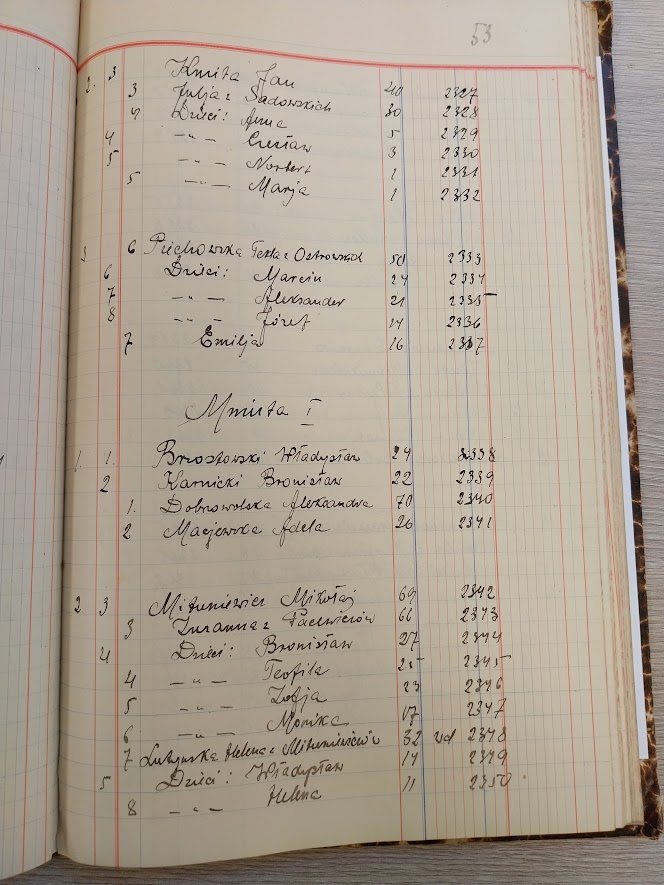 53
2. 3 Kmita Jan 40 2327
3 Julja z Sadowskich 30 2328
4 Dzieci: Anna 5 2329
4 —"— Czesław 3 2330
5 —"— Norbert 1 2331
5 —"— Marja 1 2332
3 6 Piechowska Tekla z Ostrowskich 50 2333
6 Dzieci: Marcin 24 2334
7 —"— Aleksander 21 2335
8 —"— Józef 14 2336
7 Emilja 16 2337
Mniuta I
1. 1. Brzostowski Władysław 24 2338
2 Karnicki Bronisław 22 2339
1. Dobrowolska Aleksandra 70 2340
2 Maciewska Adela 26 2341
2 3 Mikołaj 69 2342
3 Zuzanna z 66 2343
4 Dzieci: Bronisław 27 2344
4 —"— Teofila 25 2345
5 —"— Zofja 23 2346
6 —"— Monika 17 2347
7 Helena z 32 wd 2348
5 Dzieci: Władysław 14 2349
8 —"— Helena 11 2350